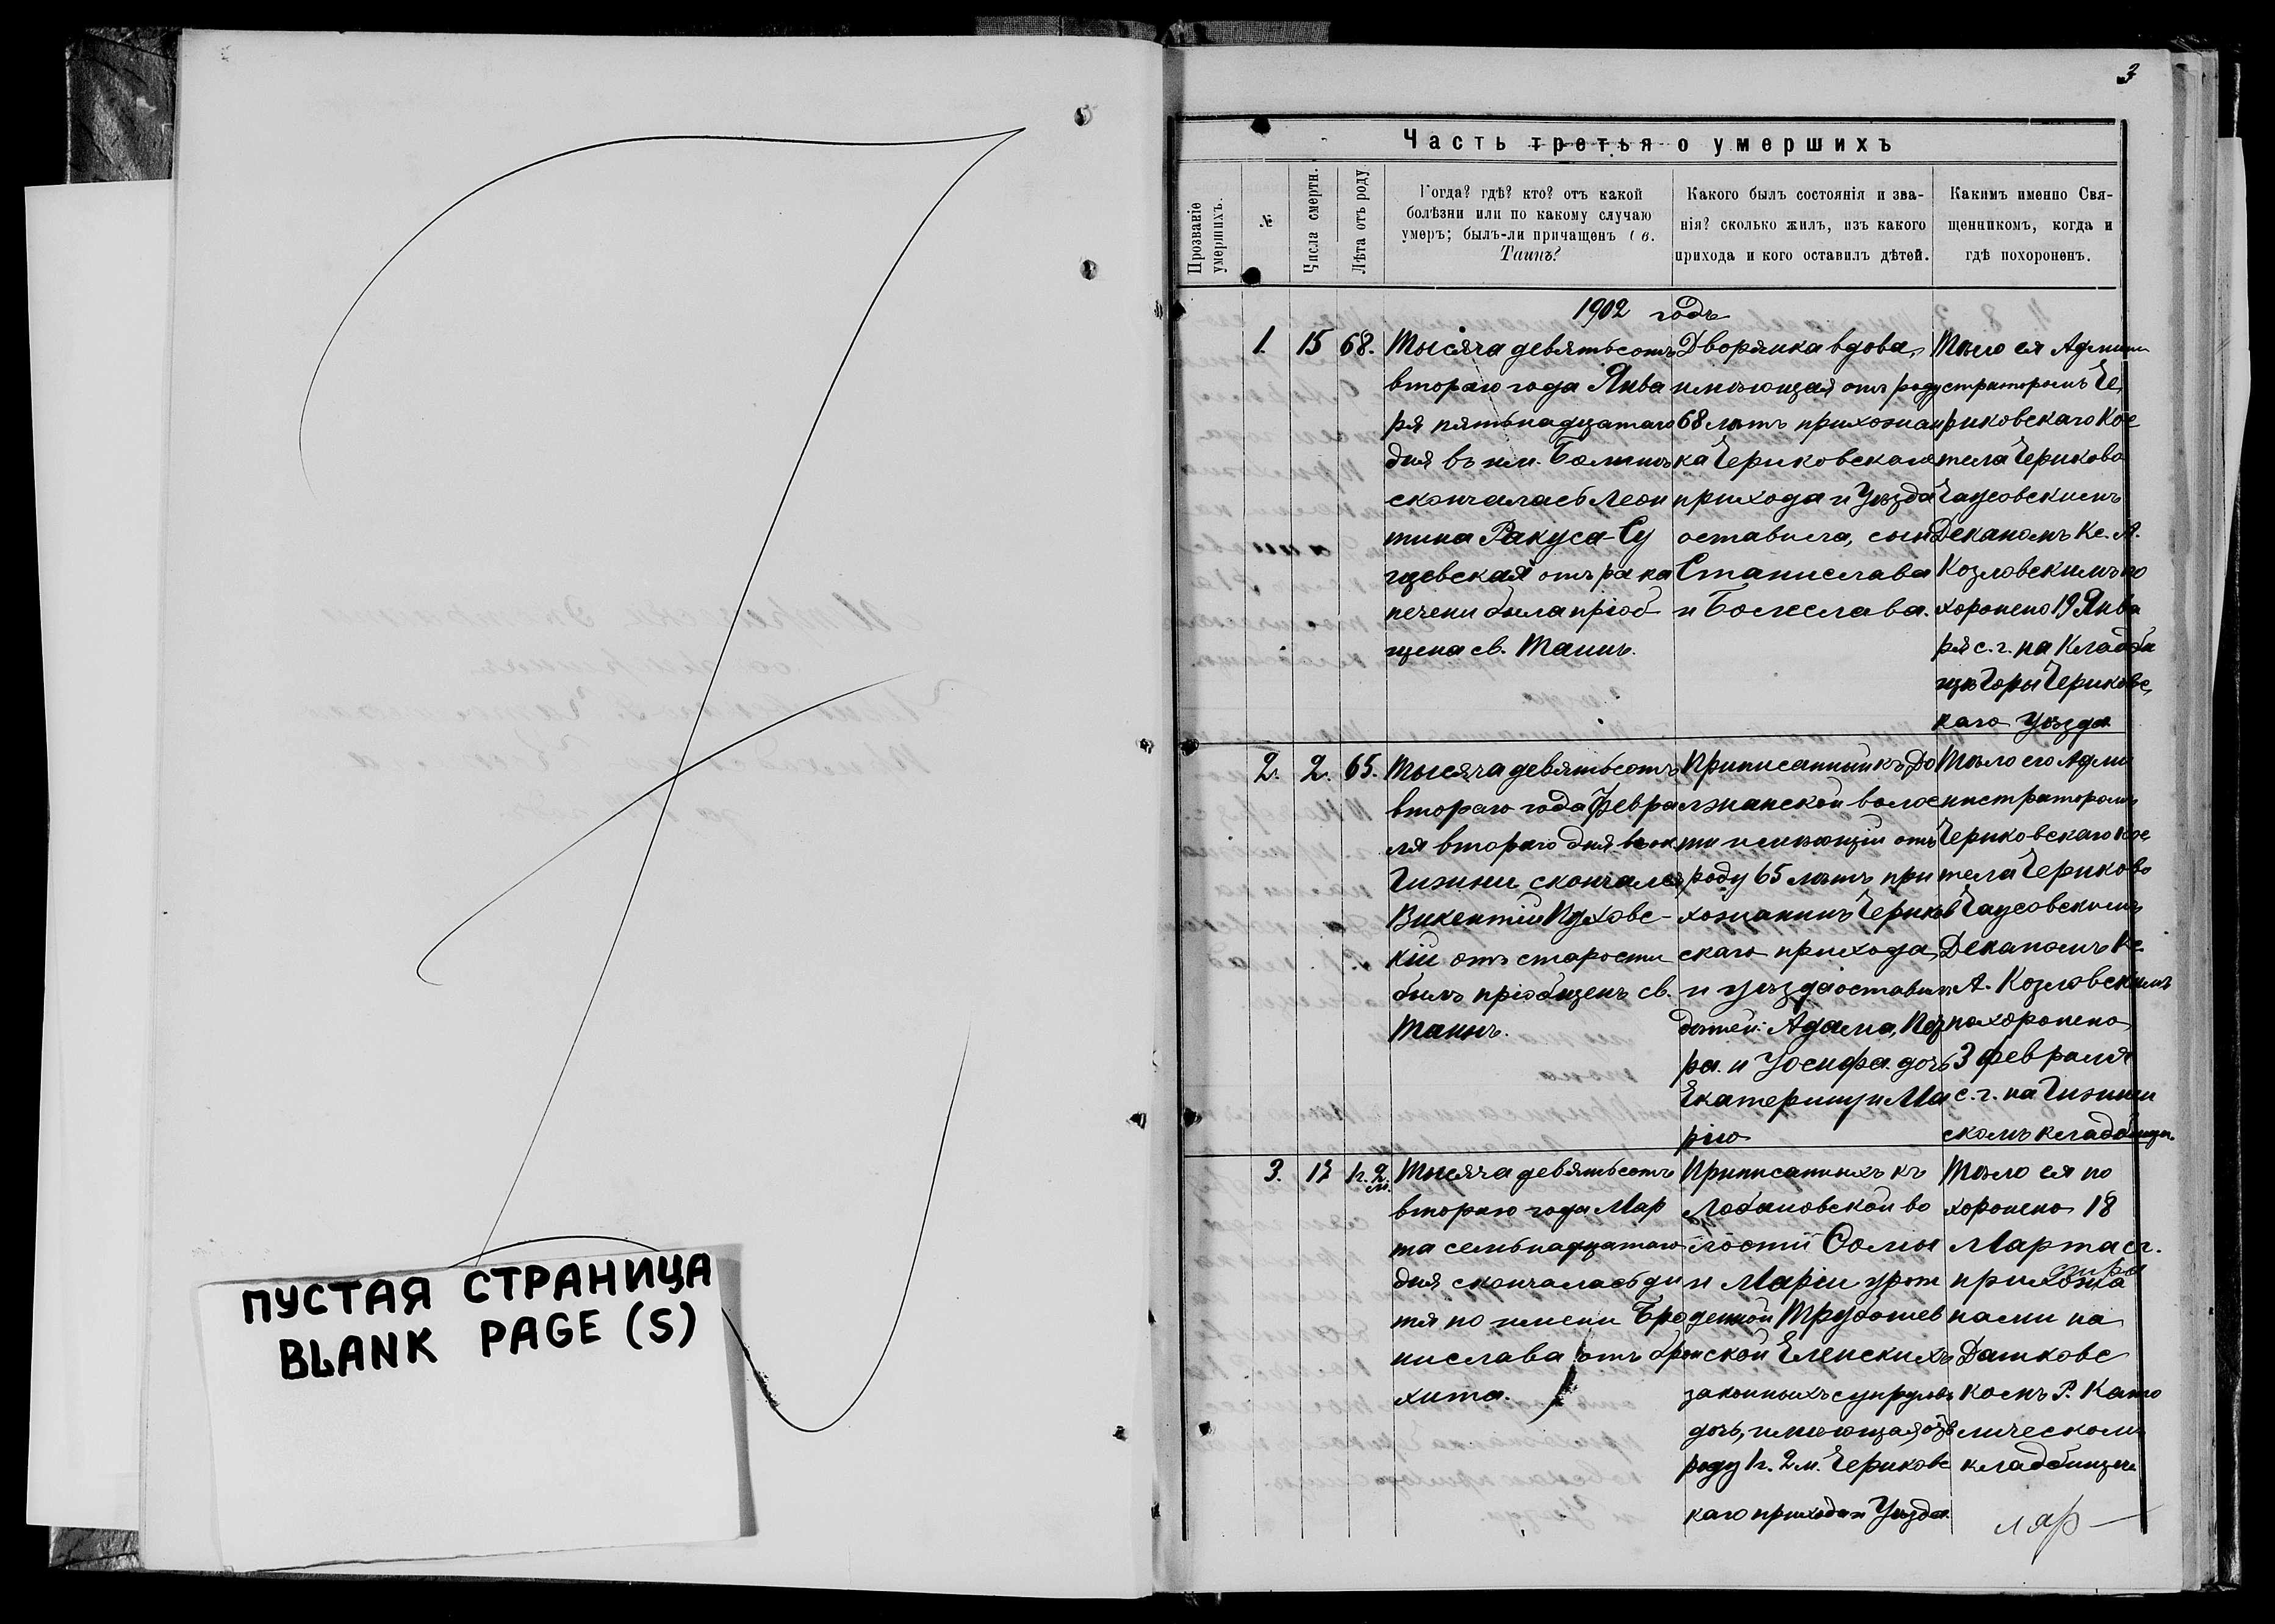 ПУСТАЯ СТРАНИЦА
BLANK PAGE (S)
3
Часть третья о умершихъ
Прозваніе умершихъ.
№
Числа смертн.
Лѣта отъ роду
Когда? гдѣ? кто? отъ какой
болѣзни или по какому случаю
умеръ; былъ-ли причащенъ Св.
Таинъ?
Какого былъ состоянія и зва-
нія? сколько жилъ, изъ какого
прихода и кого оставилъ дѣтей.
Какимъ именно Свя-
щенникомъ, когда и
гдѣ похороненъ.
1902 годъ
1. 15 68.
Тысяча девятьсотъ
втораго года Янва
ря пятьнадцатаго
дня въ им.
скончалась Леон
тина Ракуса-Су
щевская отъ рака
печени была пріоб
щена св. Таинъ.
Дворянка вдова,
имѣющая отъ роду
68 лѣтъ прихожан
ка Чериковскаго
прихода и Уѣзда
оставила, сын
Станислава
и Болеслава.
Тѣло ея Админи
страторомъ Че
риковскаго Кос
тела Чериково
Чаусовскимъ
Деканомъ Кс. А.
Козловскимъ по
хоронено 19 Янва
ря с. г. на Кладби
щѣ Горы Чериковс
каго Уѣзда
2. 2. 65.
Тысяча девятьсотъ
втораго года Февра
ля втораго дня въ ок
Гижини скончался
Викентій Пуховс-
кій отъ старости
былъ пріобщенъ св.
Таинъ.
Приписанный къ До
лжанской волос
ти имѣющій отъ
роду 65 лѣтъ при
хожанинъ Чериков
скаго прихода
и уѣзда оставилъ
дѣтей: Адама,
ра и Іосифа дочь
Екатерину и Ма
рію
Тѣло его Адми
нистраторомъ
Чериковскаго Кос
тела Чериково
Чаусовскимъ
Деканомъ Кс
А. Козловскимъ
похоронено
3 февраля
с. г. на Гижин
скомъ кладбищѣ.
3. 17 1г. 2м.
Тысяча девятьсотъ
втораго года Мар
та семьнадцатаго
дня скончалась ди
тя по имени Бро
нислава отъ брон
хита.
Приписанныхъ къ
Лобановской во
лости Ѳомы
и Маріи урож
денной Трубошев
ской Еленскихъ
законныхъ супруговъ
дочь, имѣющая отъ
роду 1г. 2м. Чериковс
каго прихода и Уѣзда
Тѣло ея по
хоронено 18
Марта с. г.
прихожа
нами на
Дашковс
комъ Р. Като
лическомъ
кладбищѣ